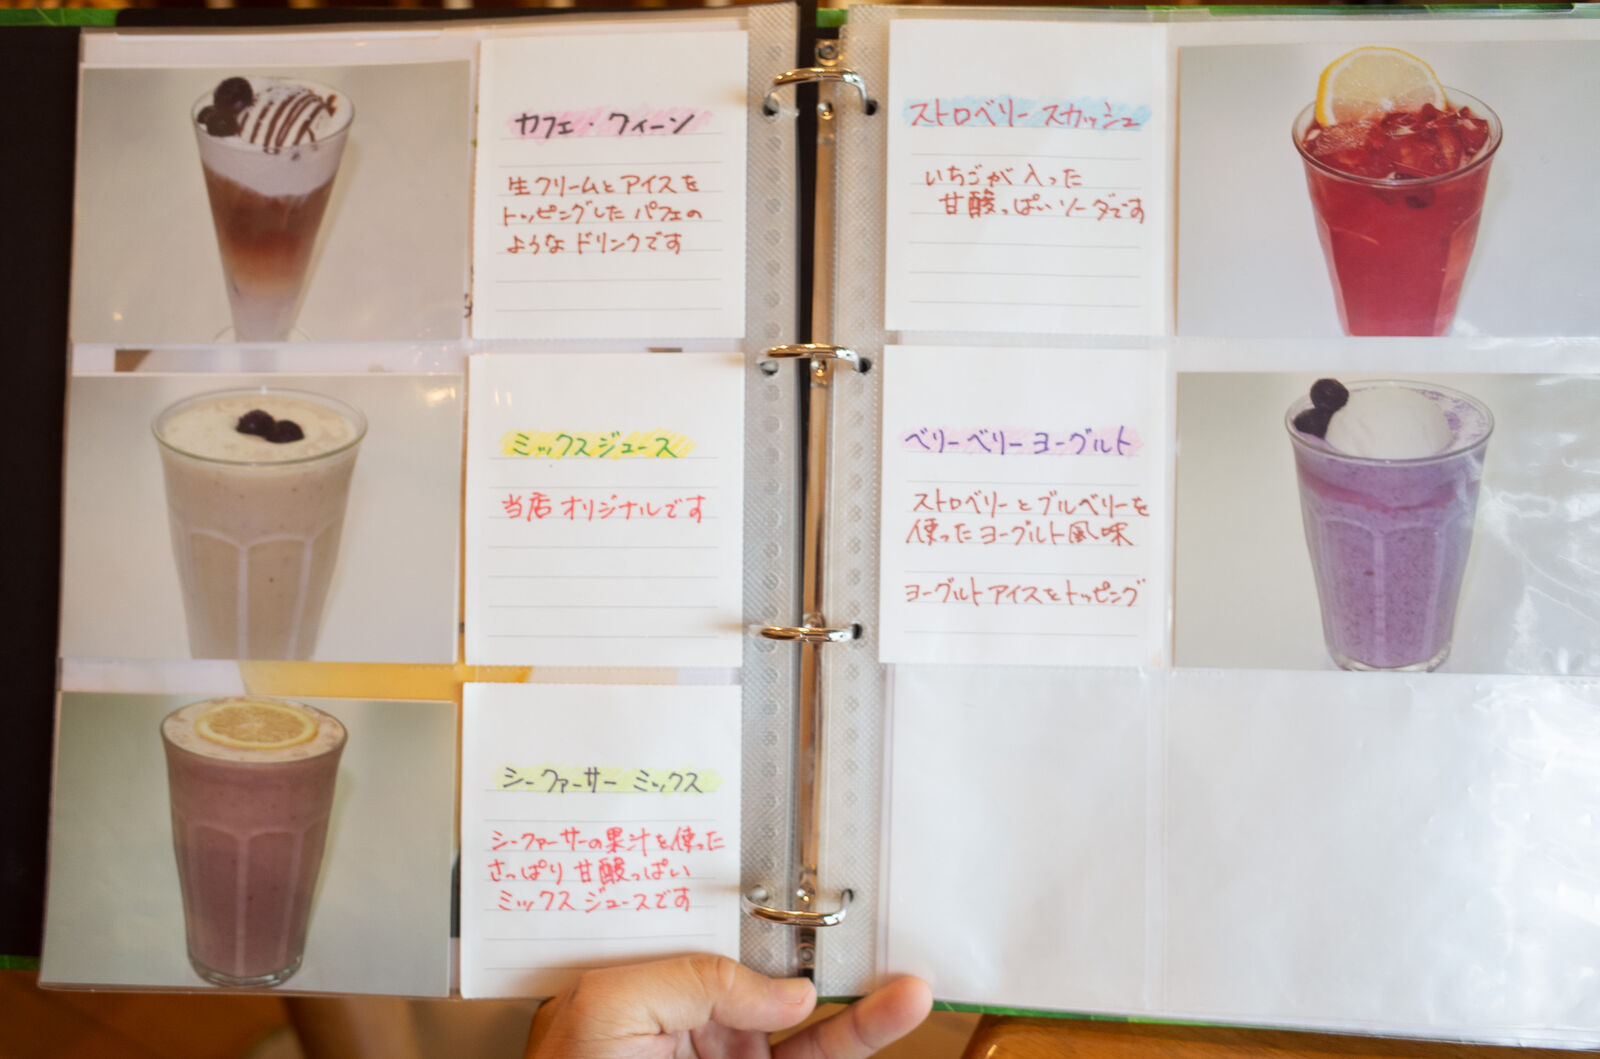 カフェ・ウィーン
生クリームとアイスを
トッピングした パフェの
ような ドリンクです
ミックスジュース
当店 オリジナルです
シークァーサー ミックス
シークァーサーの果汁を使った
さっぱり 甘酸っぱい
ミックス ジュースです
ストロベリー スカッシュ
いちごが 入った
甘酸っぱい ソーダです
ベリーベリー ヨーグルト
ストロベリーとブルベリーを
使った ヨーグルト風味
ヨーグルトアイスをトッピング